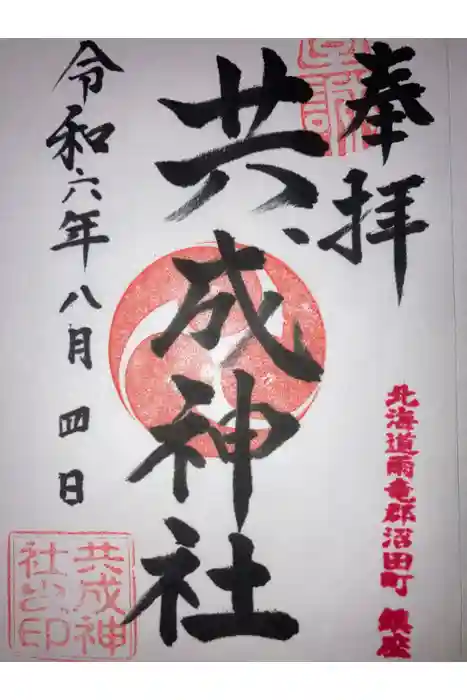 奉拝
至誠
北海道雨竜郡沼田町 銀座
共成神社
共成神
社之印
令和六年八月四日